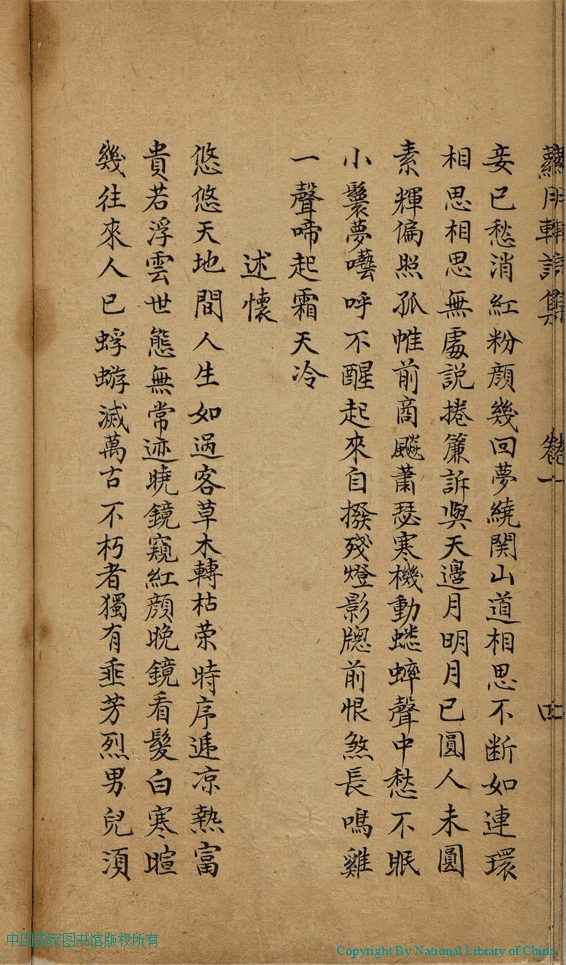 蘿月軒諺集 卷一 四
妾已愁消紅粉顔幾回夢繞関山道相思不断如連環
相思相思無處説捲簾訴與天邊月明月已圓人未圓
素輝偏照孤帷前商飈蕭瑟寒機動蟋蟀聲中愁不眠
小鬟夢囈呼不醒起來自撥殘燈影牕前恨煞長鳴雞
一聲啼起霜天冷
述懷
悠悠天地間人生如過客草木轉枯荣時序逓凉熱富
貴若浮雲世態無常迹曉鏡窺紅顔晚鏡看髮白寒暄
幾往來人已蜉蝣滅萬古不朽者獨有垂芳烈男兒須
中国国家图书馆版权所有
Copyright By National Library of China